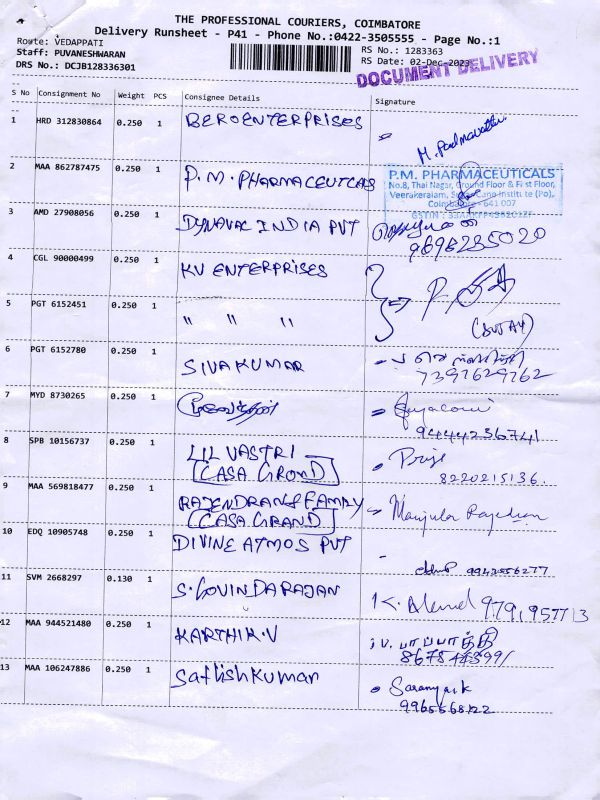 THE PROFESSIONAL COURIERS, COIMBATORE
Delivery Runsheet - P41 - Phone No.:0422-3505555 - Page No.:1
Route: VEDAPPATI
Staff: PUVANESHWARAN
DRS No.: DCJB128336301
RS No.: 1283363
RS Date: 02-Dec-2023
DOCUMENT DELIVERY
S No Consignment No Weight PCS Consignee Details Signature
1 HRD 312830864 0.250 1 BEROENTERPRISES M. Padmavathi
2 MAA 862787475 0.250 1 P.M. PHARMACEUTCALS
P.M. PHARMACEUTICALS
No.8, Thai Nagar, Ground Floor & First Floor,
Veerakeralam,
Coimbatore - 641 007
3 AMD 27908056 0.250 1 DYNAVAC INDIA PVT
9898235020
4 CGL 90000499 0.250 1 KV ENTERPRISES
5 PGT 6152451 0.250 1 " " "
(SUJAY)
6 PGT 6152780 0.250 1 SIVAKUMAR
7397629762
7 MYD 8730265 0.250 1
9444236741
8 SPB 10156737 0.250 1 LIL VASTRI
(CASA GROND) Priya
8220215136
9 MAA 569818477 0.250 1 RAJENDRANS FAMILY
(CASA GRAND) Manjula Rajendran
10 EDQ 10905748 0.250 1 DIVINE ATMOS PVT
9942556277
11 SVM 2668297 0.130 1 S. GOVINDARAJAN
K. 9791957713
12 MAA 944521480 0.250 1 KARTHIK.V
V. பாப்பாத்தி
13 MAA 106247886 0.250 1 Sathishkumar
Saranya.k